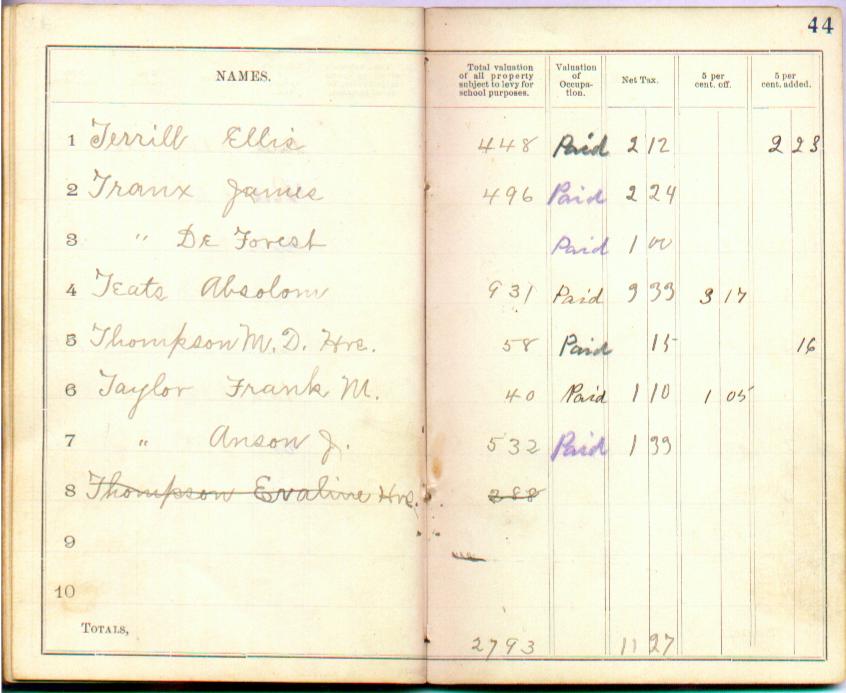 44
NAMES.
Total valuation of all property subject to levy for school purposes.
Valuation of Occupa-tion.
Net Tax.
5 per cent. off.
5 per cent. added.
1 Terrill Ellis 448 Paid 2 12 2 23
2 Tranx James 496 Paid 2 24
3 " De Forest Paid 1 00
4 Teats Absolom 931 Paid 3 33 3 17
5 Thompson M. D. Hrs. 58 Paid 15 16
6 Taylor Frank M. 40 Paid 1 10 1 05
7 " Anson J. 532 Paid 1 33
8 Thompson Evaline Hrs. 288
9
10
TOTALS, 2793 11 27